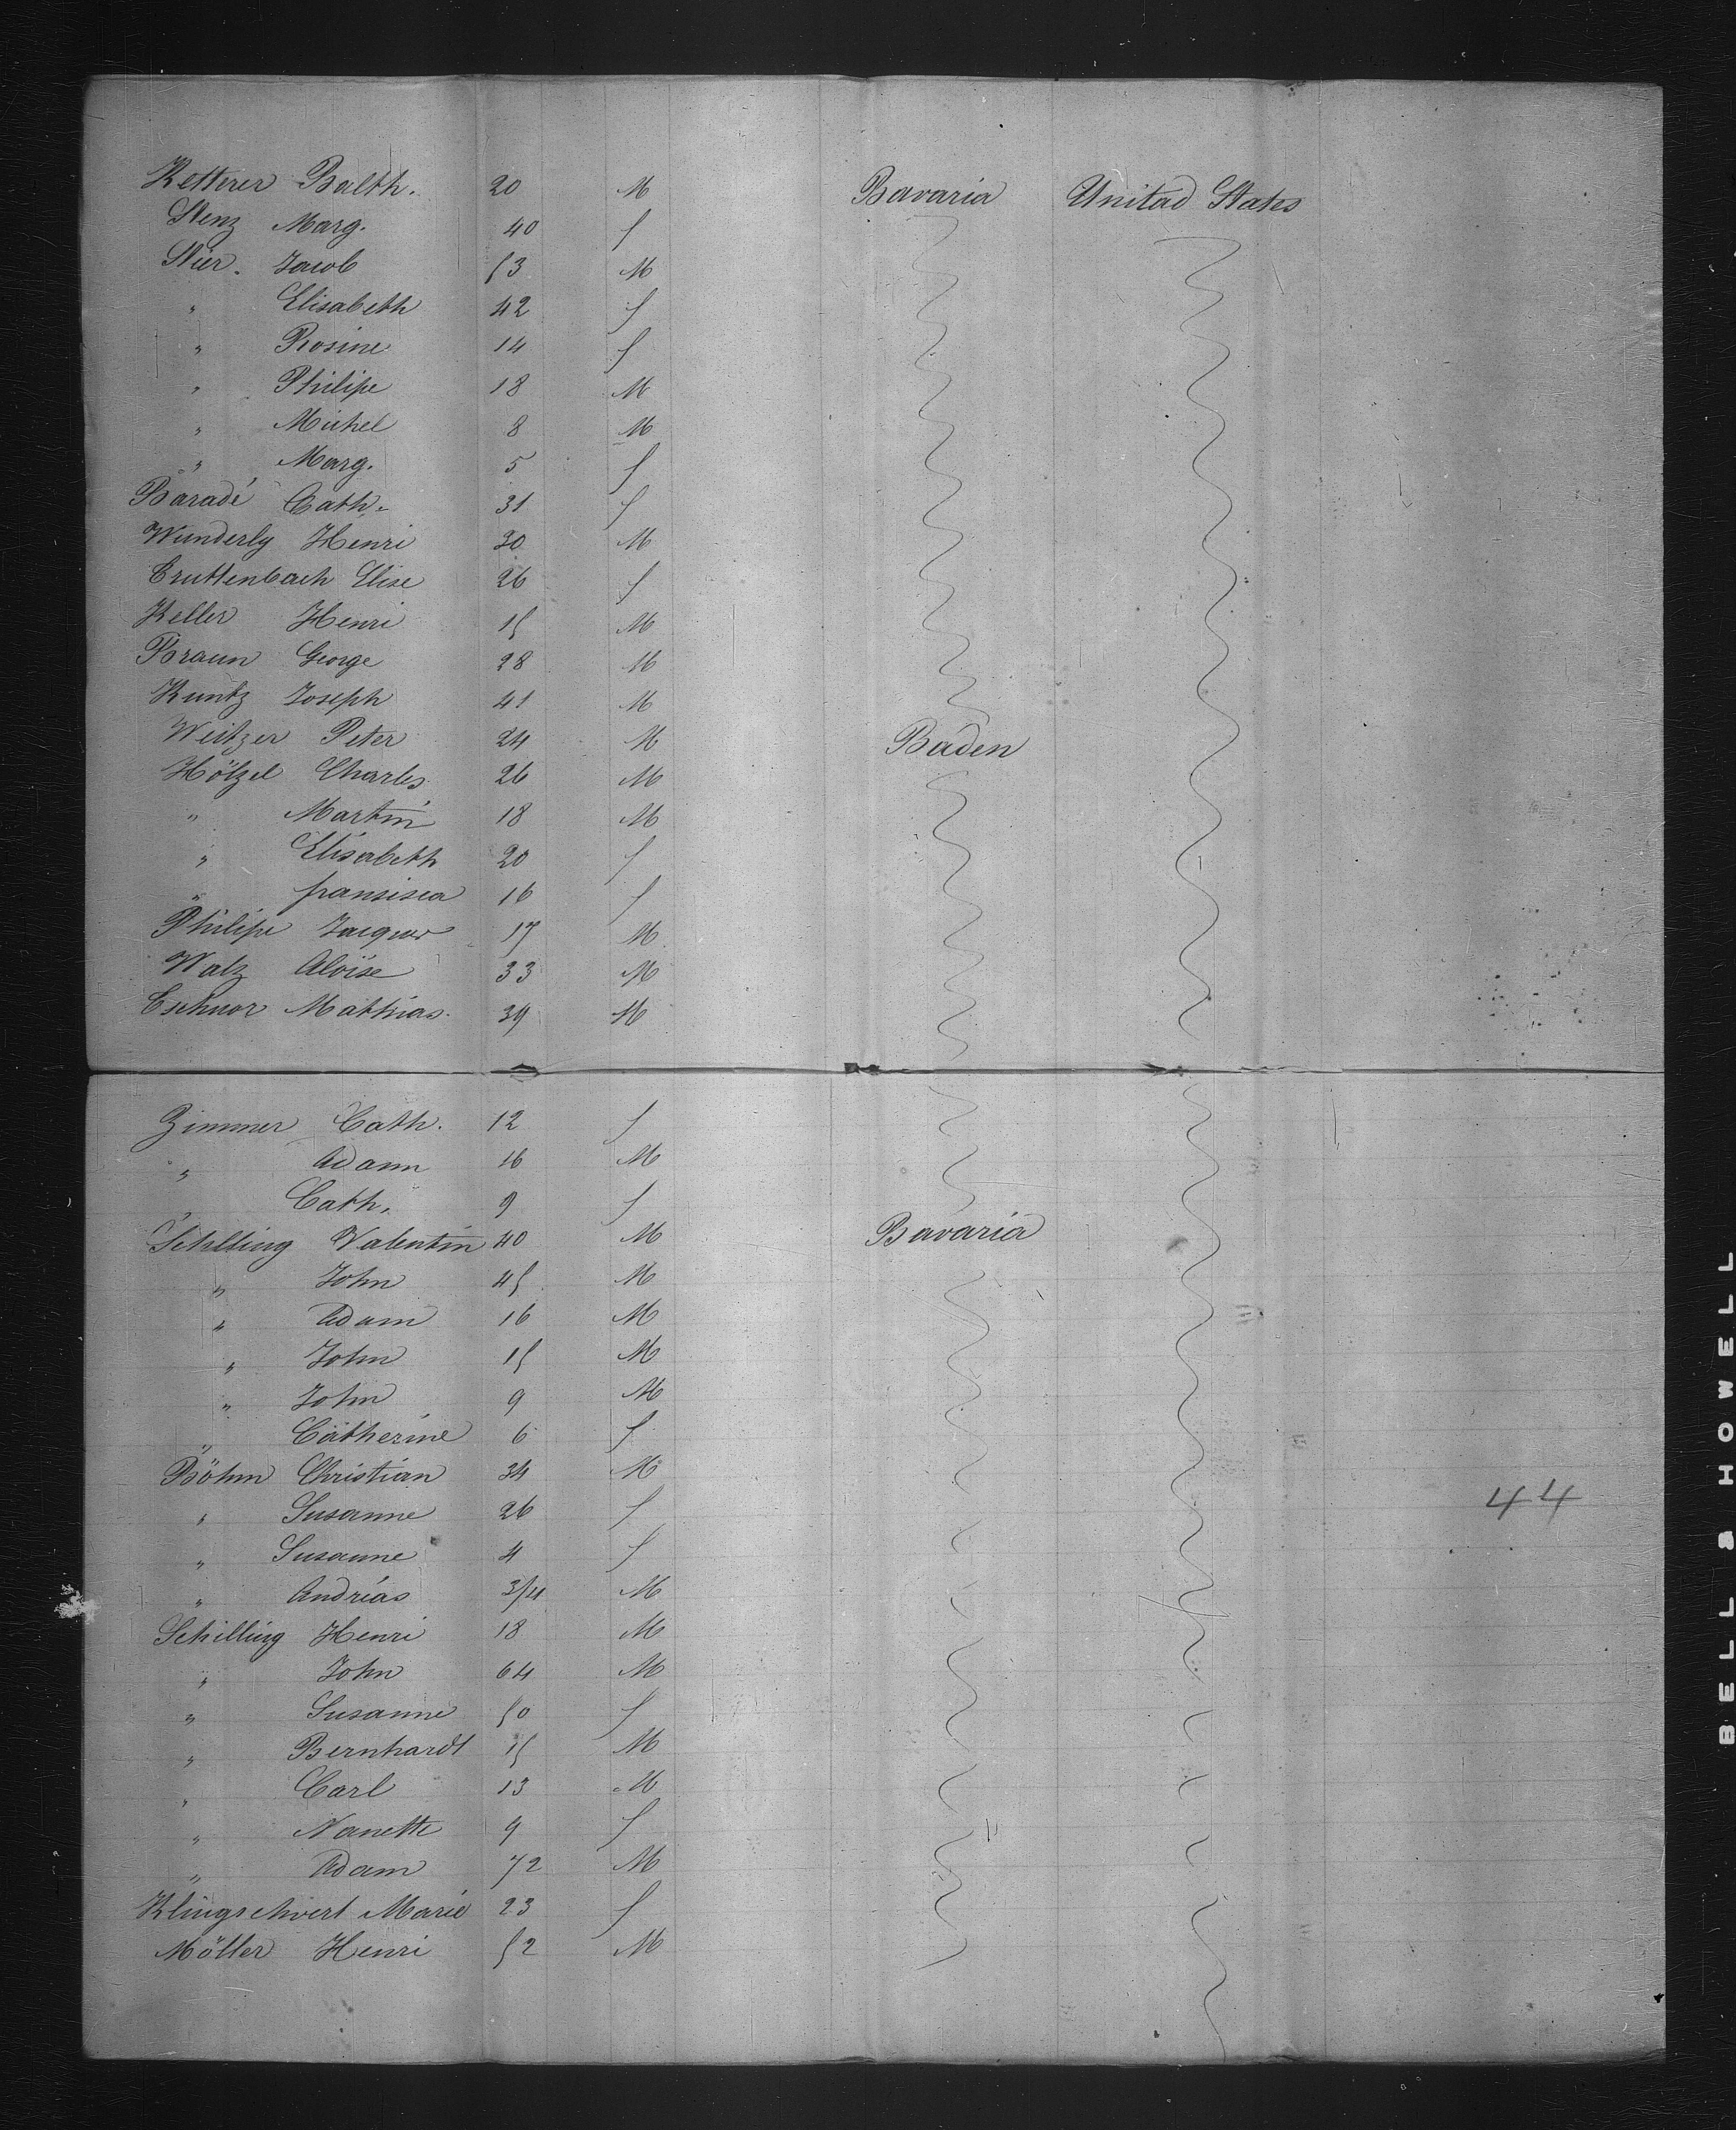 Ketterer Balth. 20 M Bavaria Unitad States
Stenz Marg. 40 f
Stier. Jacob 53 M
" Elisabeth 42 f
" Rosine 14 f
" Philipe 18 M
" Michel 8 M
" Marg. 5 f
Baradé Cath. 31 f
Wunderly Henri 30 M
Cruttenbach Elise 26 f
Keller Henri 15 M
Braun George 28 M
Kuntz Joseph 41 M
Weitzer Peter 24 M Baden
Hölzel Charles 26 M
" Martin 18 M
" Elisabeth 20 f
" fransisca 16 f
Philipe Jacques 17 M
Walz Aloïse 33 M
Mathias. 39 M
Zimmer Cath. 12 f
" Adam 16 M
" Cath. 9 f
Schlling Valentin 40 M Bavaria
" John 45 M
" Adam 16 M
" John 15 M
" John 9 M
" Catherine 6 f
Böhm Christian 34 M
" Susanne 26 f
44
" Susanne 4 f
" Andrias 3/4 M
Schilling Henri 18 M
" John 64 M
" Susanne 50 f
" Bernhardt 15 M
" Carl 13 M
" Nanette 9 f
" Adam 72 M
Klingschvert Marie 23 f
Möller Henri 52 M
BELL & HOWELL